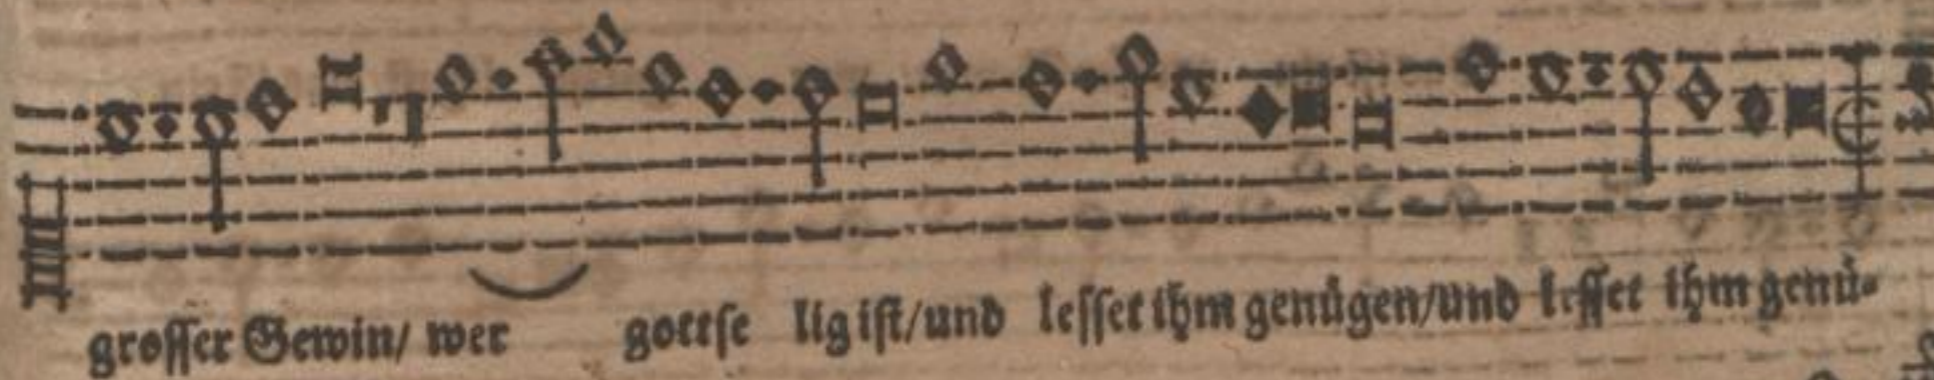 groſſer Gewin/ wer gottſe lig iſt/und leſſet ihm genügen/und leſſet ihm genü-